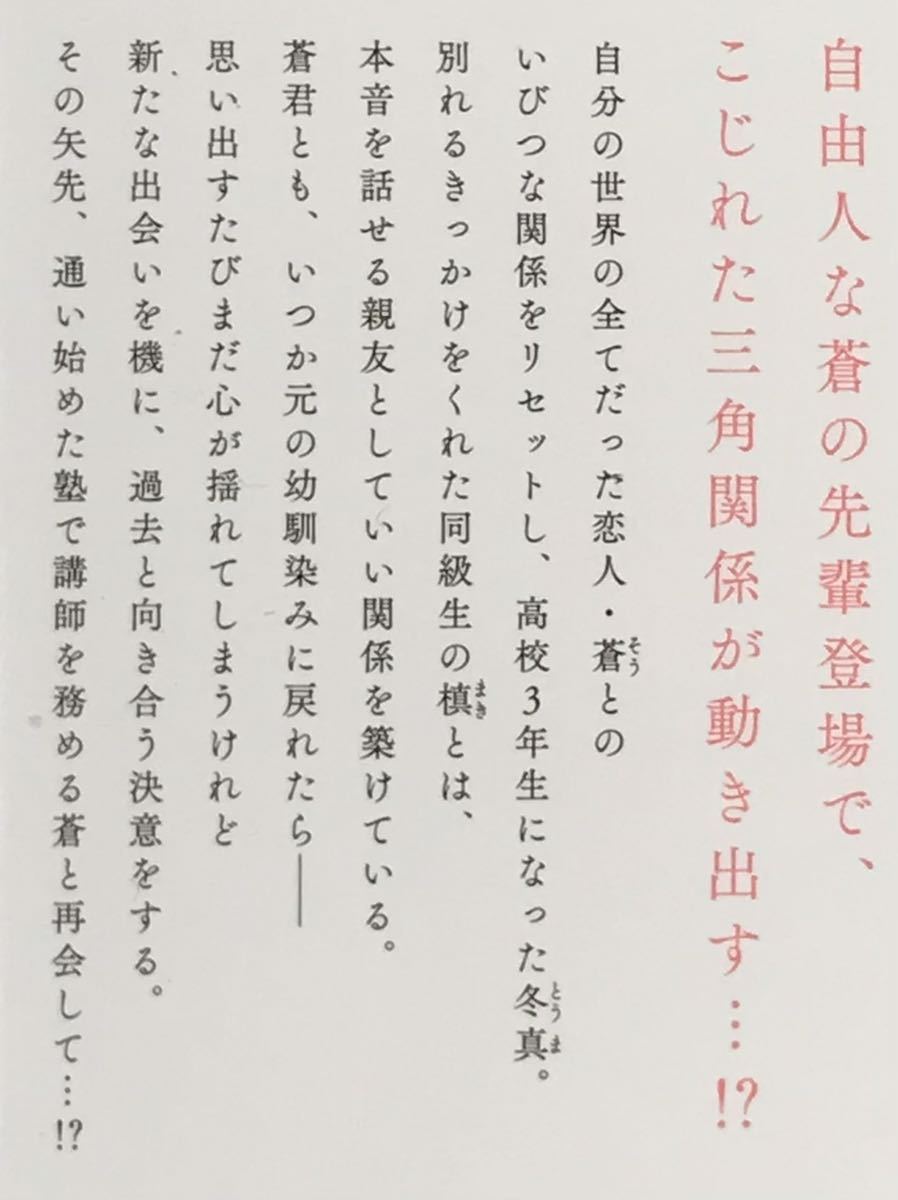 自由人な蒼の先輩登場で、
こじれた三角関係が動き出す…!?
自分の世界の全てだった恋人・蒼との
いびつな関係をリセットし、高校3年生になった冬真。
別れるきっかけをくれた同級生の槙とは、
本音を話せる親友としていい関係を築けている。
蒼君とも、いつか元の幼馴染みに戻れたら――
思い出すたびまだ心が揺れてしまうけれど
新たな出会いを機に、過去と向き合う決意をする。
その矢先、通い始めた塾で講師を務める蒼と再会して…!?